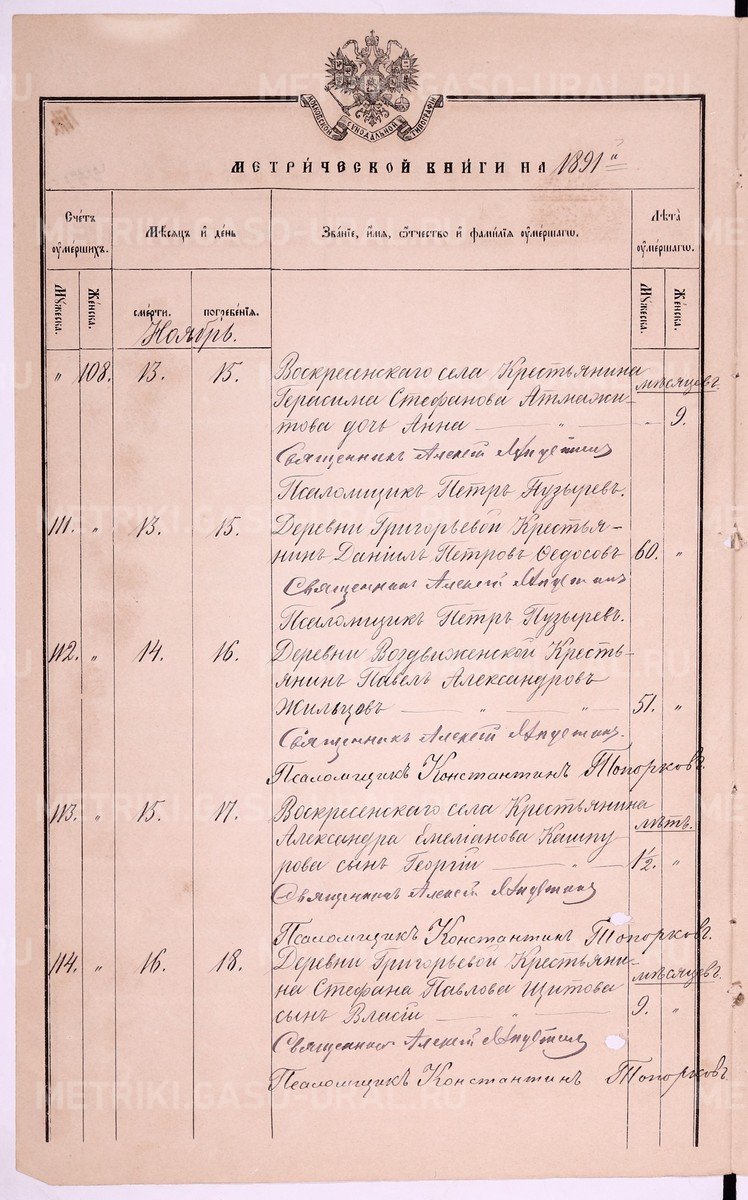 МОСКОВСКОЙ СѴНОДАЛЬНОЙ ТИПОГРАФІИ
МЕТРИ́ЧЕСКОЙ КНИ́ГИ НА 1891й
Сче́тъ ᲂу҆ме́ршихъ.
Мѣ́сяцъ и҆ де́нь
Зва́ніе, и҆́мя, ѻ҆́тчество и҆ фами́лія ᲂу҆ме́ршагѡ.
Лѣ́та ᲂу҆ме́ршагѡ.
Му́жеска.
Же́нска.
сме́рти.
погребе́нія.
Му́жеска.
Же́нска.
Ноябрь.
" 108. 13. 15. Воскресенскаго села Крестьянина мѣсяцевъ
Герасима Стефанова Атмажи-
това дочь Анна — " — " 9.
Священникъ Алексій
Псаломщикъ Петръ Пузыревъ.
111. " 13. 15. Деревни Григорьевой Крестья-
нинъ Даніилъ Петровъ Ѳедосовъ 60. "
Священникъ Алексій
Псаломщикъ Петръ Пузыревъ.
112. " 14. 16. Деревни Воздвиженской Кресть-
янинъ Павелъ Александровъ
Жильцовъ — " — " — 51. "
Священникъ Алексій
Псаломщикъ Константинъ Топорковъ.
113. " 15. 17. Воскресенскаго села Крестьянина лѣтъ.
Александра Емеліанова Кашпу
рова сынъ Георгій — " — 1½. "
Священникъ Алексій
Псаломщикъ Константинъ Топорковъ.
114. " 16. 18. Деревни Григорьевой Крестьяни- мѣсяцевъ.
на Стефана Павлова Щитова
сынъ Власій — " — 9. "
Священникъ Алексій
Псаломщикъ Константинъ Топорковъ.
METRIKI.GASO-URAL.RU